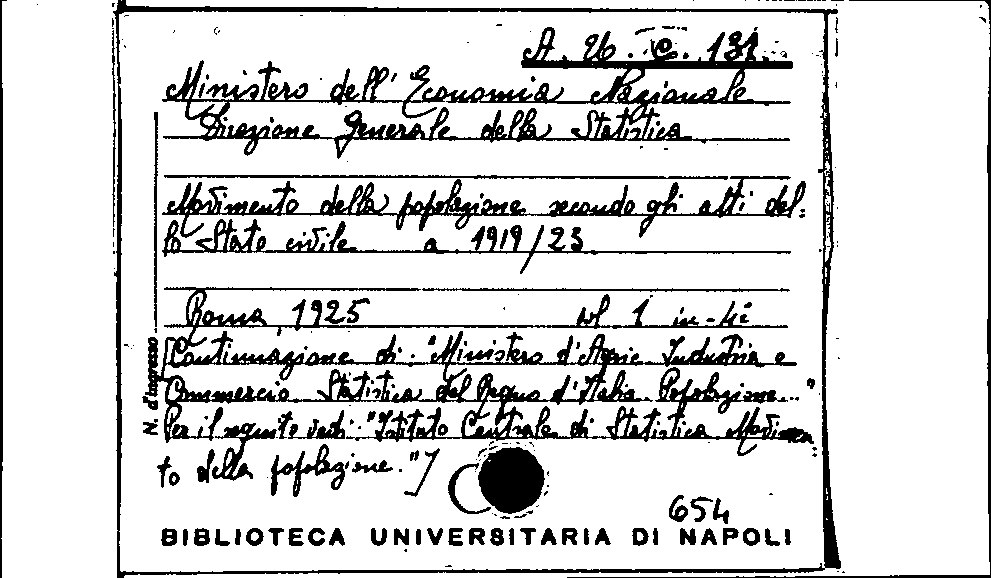 A. 26. C. 131.
Ministero dell' Economia Nazionale
Direzione Generale della Statistica
Movimento della popolazione secondo gli atti del-
lo Stato civile a. 1919/23
Roma, 1925 vol 1 in-4º
[Continuazione di: "Ministero d'Agric. Industria e
Commercio. Statistica del Regno d'Italia. Popolazione..."
Per il seguito vedi: "Istituto Centrale di Statistica. Movimen
to della popolazione."]
N. d'ingresso
654
BIBLIOTECA UNIVERSITARIA DI NAPOLI